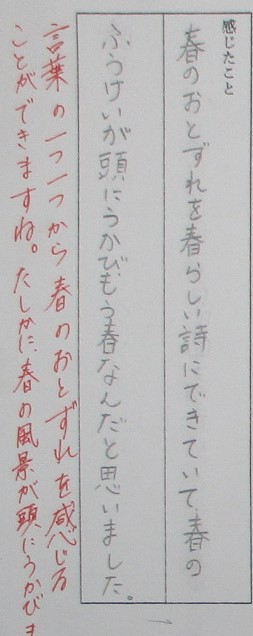 感じたこと
春のおとずれを春らしい詩にできていて、春の
ふうけいが頭にうかび、もう春なんだと思いました。
言葉の一つ一つから春のおとずれを感じる
ことができますね。たしかに、春の風景が頭にうかびま